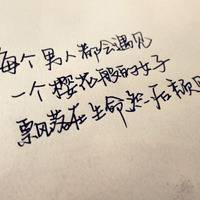 每个男人都会遇见
一个樱花般的女子
飘落在生命